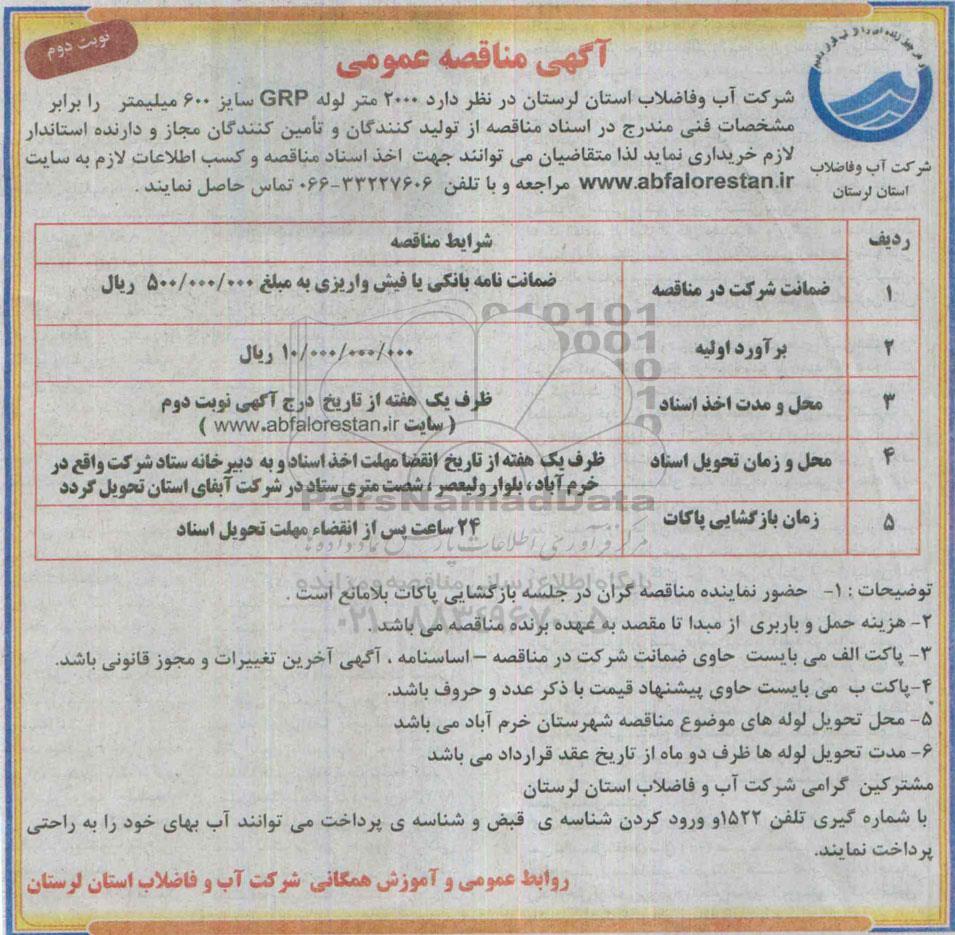 نوبت دوم
آگهی مناقصه عمومی
شرکت آب وفاضلاب
استان لرستان
شرکت آب وفاضلاب استان لرستان در نظر دارد ۲۰۰۰ متر لوله GRP سایز ۶۰۰ میلیمتر را برابر
مشخصات فنی مندرج در اسناد مناقصه از تولید کنندگان و تأمین کنندگان مجاز و دارنده استاندار
لازم خریداری نماید لذا متقاضیان می توانند جهت اخذ اسناد مناقصه و کسب اطلاعات لازم به سایت
www.abfalorestan.ir مراجعه و با تلفن ۳۳۲۲۷۶۰۶-۰۶۶ تماس حاصل نمایند .
ردیف شرایط مناقصه
۱ ضمانت شرکت در مناقصه ضمانت نامه بانکی یا فیش واریزی به مبلغ ۵۰۰/۰۰۰/۰۰۰ ریال
۲ برآورد اولیه ۱۰/۰۰۰/۰۰۰/۰۰۰ ریال
۳ محل و مدت اخذ اسناد ظرف یک هفته از تاریخ درج آگهی نوبت دوم
( سایت www.abfalorestan.ir )
۴ محل و زمان تحویل اسناد ظرف یک هفته از تاریخ انقضا مهلت اخذ اسناد و به دبیرخانه ستاد شرکت واقع در
خرم آباد ، بلوار ولیعصر ، شصت متری ستاد در شرکت آبفای استان تحویل گردد
۵ زمان بازگشایی پاکات ۲۴ ساعت پس از انقضاء مهلت تحویل اسناد
ParsNamadData
مرکز فرآوری اطلاعات پارس نماد داده ها
پایگاه اطلاع رسانی مناقصه و مزایده
۰۲۱-۸۸۳۴۹۶۷۰-۵
توضیحات : ۱- حضور نماینده مناقصه گران در جلسه بازگشایی پاکات بلامانع است .
۲- هزینه حمل و باربری از مبدا تا مقصد به عهده برنده مناقصه می باشد.
۳- پاکت الف می بایست حاوی ضمانت شرکت در مناقصه – اساسنامه ، آگهی آخرین تغییرات و مجوز قانونی باشد.
۴-پاکت ب می بایست حاوی پیشنهاد قیمت با ذکر عدد و حروف باشد.
۵- محل تحویل لوله های موضوع مناقصه شهرستان خرم آباد می باشد
۶- مدت تحویل لوله ها ظرف دو ماه از تاریخ عقد قرارداد می باشد
مشترکین گرامی شرکت آب و فاضلاب استان لرستان
با شماره گیری تلفن ۱۵۲۲و ورود کردن شناسه ی قبض و شناسه ی پرداخت می توانند آب بهای خود را به راحتی
پرداخت نمایند.
روابط عمومی و آموزش همگانی شرکت آب و فاضلاب استان لرستان